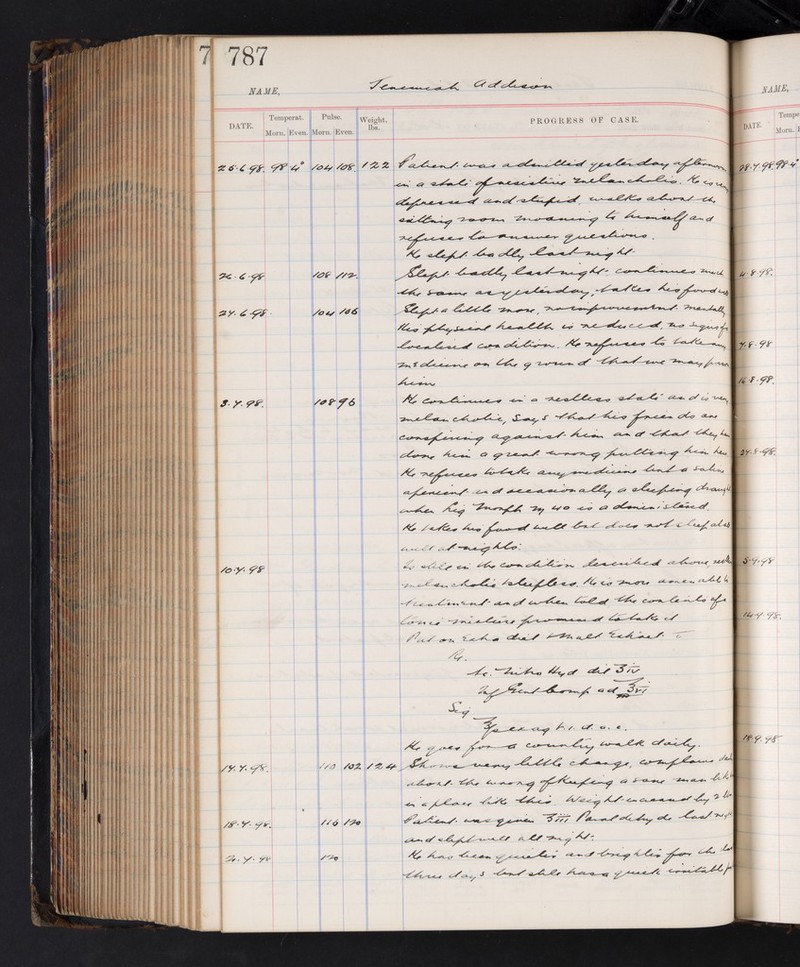 7 787
NAME, Jeremiah Addison
NAME,
DATE. Temperat. Morn. Even. Pulse. Morn. Even. Weight, lbs. PROGRESS OF CASE.
DATE Morn.
25.6.98. 98.4° 104 108 122 Patient was admitted yesterday afternoon
in a state of resistive melancholia. He is very
depressed and stupid, walks about the
sitting room moaning to himself and
refuses to answer questions.
He slept badly last night.
26.6.98 108 112. Slept badly last night. continues much
the same as yesterday, takes his food well
27.6.98. 104 106 Slept a little more, no improvement mentally
His physical health is reduced, no signs of
localised condition. He refuses to take any
medicine on the ground that we may poison
him
3.7.98. 108 96 He continues in a restless state and is very
melancholic, says that his friends are
conspiring against him and that they have
done him a great wrong putting him here
He refuses to take any medicine but a saline
aperient and occasionally a sleeping draught
when Liq Morph m 40 is administered.
He takes his food well but does not sleep at all
well at nights.
10.7.98 Is still in the condition described above, restless
melancholic & sleepless. He is more amenable to
treatment and when told the contents of a
tonic mixture promised to take it
Put on Extra diet & Malt Extract.
Rx.
Ac. Nitro Hyd dil ʒiv
Inf Gent Comp ad ℥vi
Sig
ex aq t.d.s.
He goes for a country walk daily.
14.7.98. 110 102 124 Shows very little change, complains
about the wrong of keeping a sane man like him
in a place like this. Weight increased by 2 lbs
18.7.98. 116 120 Patient was given ʒiii Paraldehyde last night
and slept well all night.
120 He has been quieter and brighter for the last
three days but still has a quick irritable
28.7.98 98.4°
4.8.98.
7.8.98
16.8.98.
27.8.98.
5.9.98
14.9.98.
18.9.98